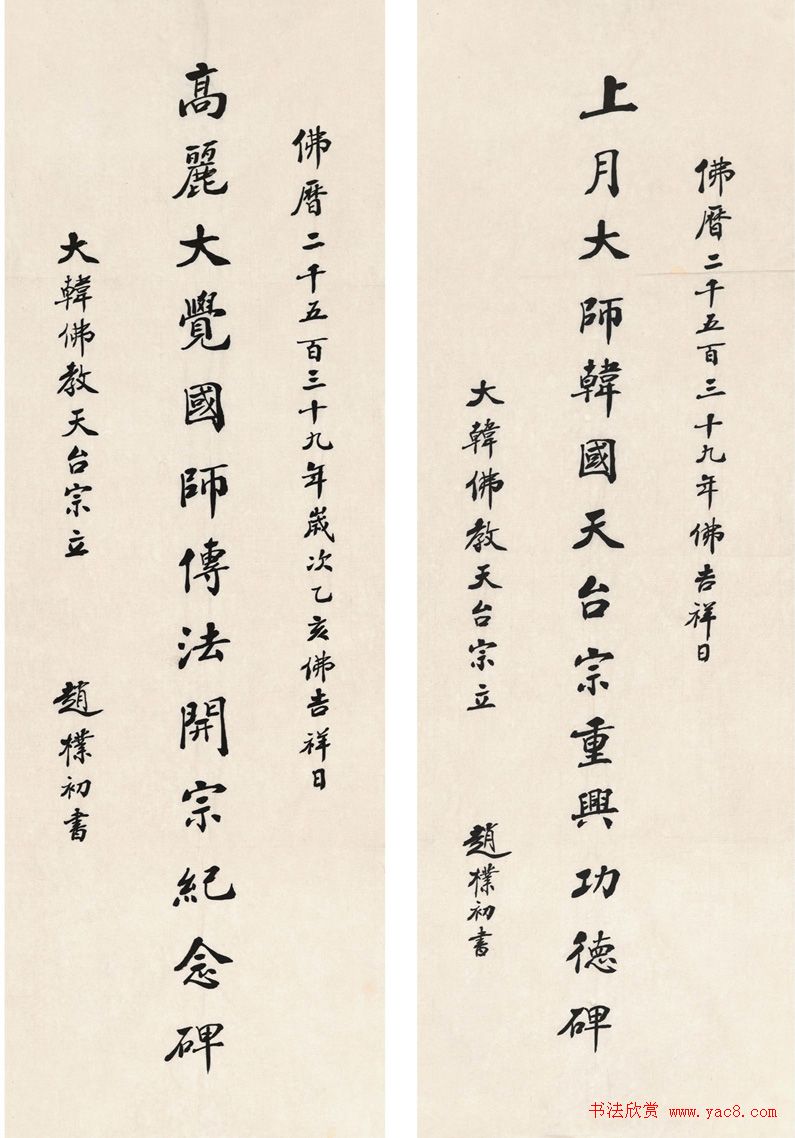 佛曆二千五百三十九年佛吉祥日
上月大師韓國天台宗重興功德碑
大韓佛教天台宗立 趙樸初書
佛曆二千五百三十九年歲次乙亥佛吉祥日
高麗大覺國師傳法開宗紀念碑
大韓佛教天台宗立 趙樸初書
书法欣赏 www.yac8.com